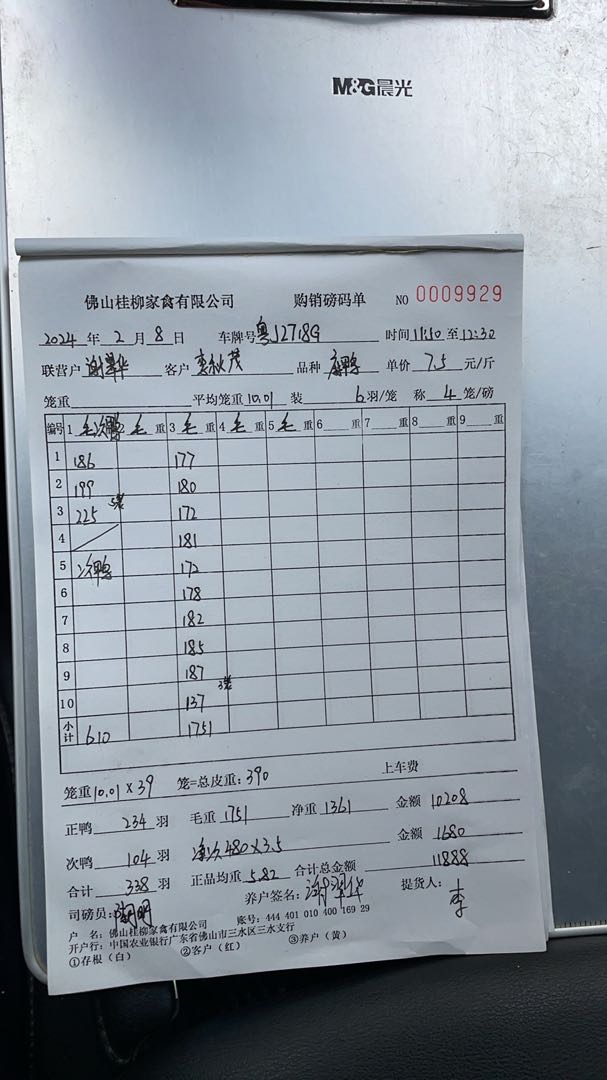 M&G晨光
佛山桂柳家禽有限公司 购销磅码单 NO 0009929
2024 年 2 月 8 日 车牌号 粤J2718G 时间 11:10 至 12:30
联营户 谢翠华 客户 秋茂 品种 麻鸭 单价 7.5 元/斤
笼重 平均笼重 10.01 装 6 羽/笼 称 4 笼/磅
编号 1 毛次鸭 2 毛 重 3 毛 重 4 毛 重 5 毛 重 6 重 7 重 8 重 9 重
1 186 177
2 199 180
3 225 5笼 172
4 181
5 次鸭 172
6 178
7 182
8 185
9 187
10 3笼 137
小计 610 1751
笼重 10.01 × 39 笼=总皮重: 390 上车费
正鸭 234 羽 毛重 1751 净重 1361 金额 10208
次鸭 104 羽 净次 480×3.5 金额 1680
合计 338 羽 正品均重 5.82 合计总金额 11888
司磅员: 明 养户签名: 谢翠华 提货人: 李
户 名: 佛山桂柳家禽有限公司 账号: 444 401 010 400 169 29
开户行: 中国农业银行广东省佛山市三水区三水支行
①存根（白） ②客户（红） ③养户（黄）